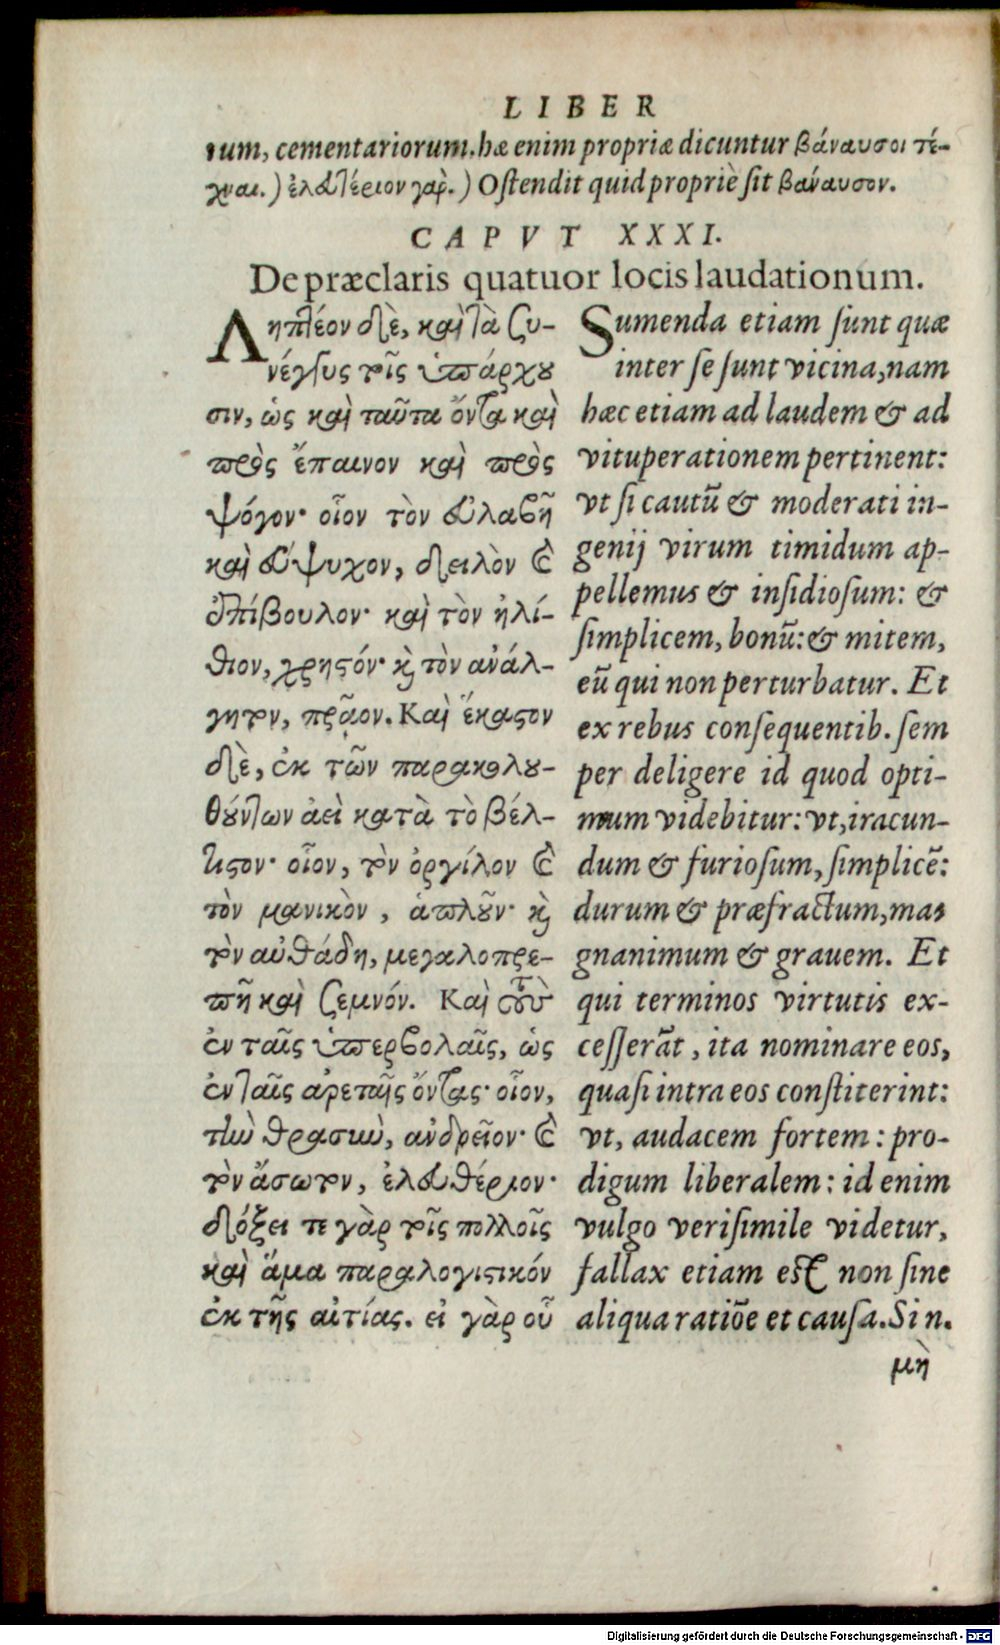 LIBER
rum, cementariorum. hæ enim propriæ dicuntur βάναυσοι τέ-
χναι.) ἐλευθέριον γάρ.) Ostendit quid propriè sit βάναυσον.
CAPVT XXXI.
De præclaris quatuor locis laudationum.
Ληπτέον δὲ, καὶ τὰ συ-
νέγγυς τοῖς ὑπάρχου
σιν, ὡς καὶ ταῦτα ὄντα καὶ
πρὸς ἔπαινον καὶ πρὸς
ψόγον· οἷον τὸν εὐλαβῆ
καὶ εὔψυχον, δειλὸν καὶ
ἐπίβουλον· καὶ τὸν ἠλί-
θιον, χρηστόν· καὶ τὸν ἀνάλ-
γητον, πρᾷον. Καὶ ἕκαστον
δὲ, ἐκ τῶν παρακολου-
θούντων ἀεὶ κατὰ τὸ βέλ-
τιστον· οἷον, τὸν ὀργίλον καὶ
τὸν μανικὸν, ἁπλοῦν· καὶ
τὸν αὐθάδη, μεγαλοπρε-
πῆ καὶ σεμνόν. Καὶ τοὺς
ἐν ταῖς ὑπερβολαῖς, ὡς
ἐν ταῖς ἀρεταῖς ὄντας· οἷον,
τὴν θρασὺν, ἀνδρεῖον· καὶ
τὸν ἄσωτον, ἐλευθέριον·
δόξει τε γὰρ τοῖς πολλοῖς
καὶ ἅμα παραλογιστικόν
ἐκ τῆς αἰτίας. εἰ γὰρ οὗ
Sumenda etiam sunt quæ
inter se sunt vicina, nam
hæc etiam ad laudem & ad
vituperationem pertinent:
vt si cautū & moderati in-
genij virum timidum ap-
pellemus & insidiosum: &
simplicem, bonū: & mitem,
eū qui non perturbatur. Et
ex rebus consequentib. sem
per deligere id quod opti-
mum videbitur: vt, iracun-
dum & furiosum, simplicē:
durum & præfractum, ma-
gnanimum & grauem. Et
qui terminos virtutis ex-
cesserāt, ita nominare eos,
quasi intra eos constiterint:
vt, audacem fortem: pro-
digum liberalem: id enim
vulgo verisimile videtur,
fallax etiam est non sine
aliqua ratiōe et causa. Si n.
μὴ
Digitalisierung gefördert durch die Deutsche Forschungsgemeinschaft - DFG